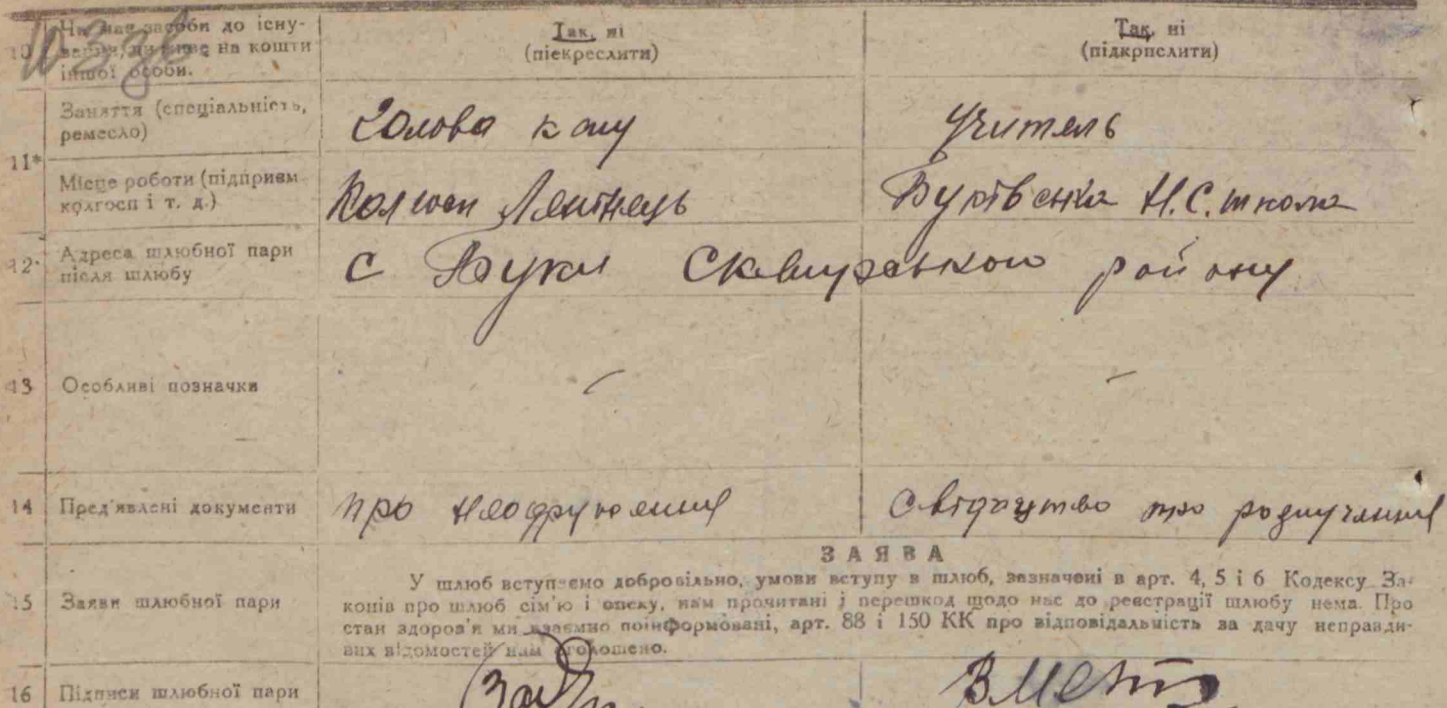 10 Чи має засоби до існу-
вання, чи живе на кошти
іншої особи.
Так, ні
(піекреслити)
Так, ні
(підкрпслити)
11*
Заняття (спеціальність,
ремесло)
Голова к
учитель
Місце роботи (підприєм
колгосп і т. д.)
Колгосп
Н.С. школа
12 Адреса шлюбної пари
після шлюбу
с Буки Сквирського району
13 Особливі позначки
–
–
14 Пред'явлені документи
про неодруження
Свідоцтво про розлучення
ЗАЯВА
15 Заяви шлюбної пари
У шлюб вступаємо добровільно, умови вступу в шлюб, зазначені в арт. 4, 5 і 6 Кодексу За-
конів про шлюб сім'ю і опеку, нам прочитані і перешкод щодо нас до реєстрації шлюбу нема. Про
стан здоров'я ми взаємно поінформовані, арт. 88 і 150 КК про відповідальність за дачу неправди-
вих відомостей нам оголошено.
16 Підписи шлюбної пари